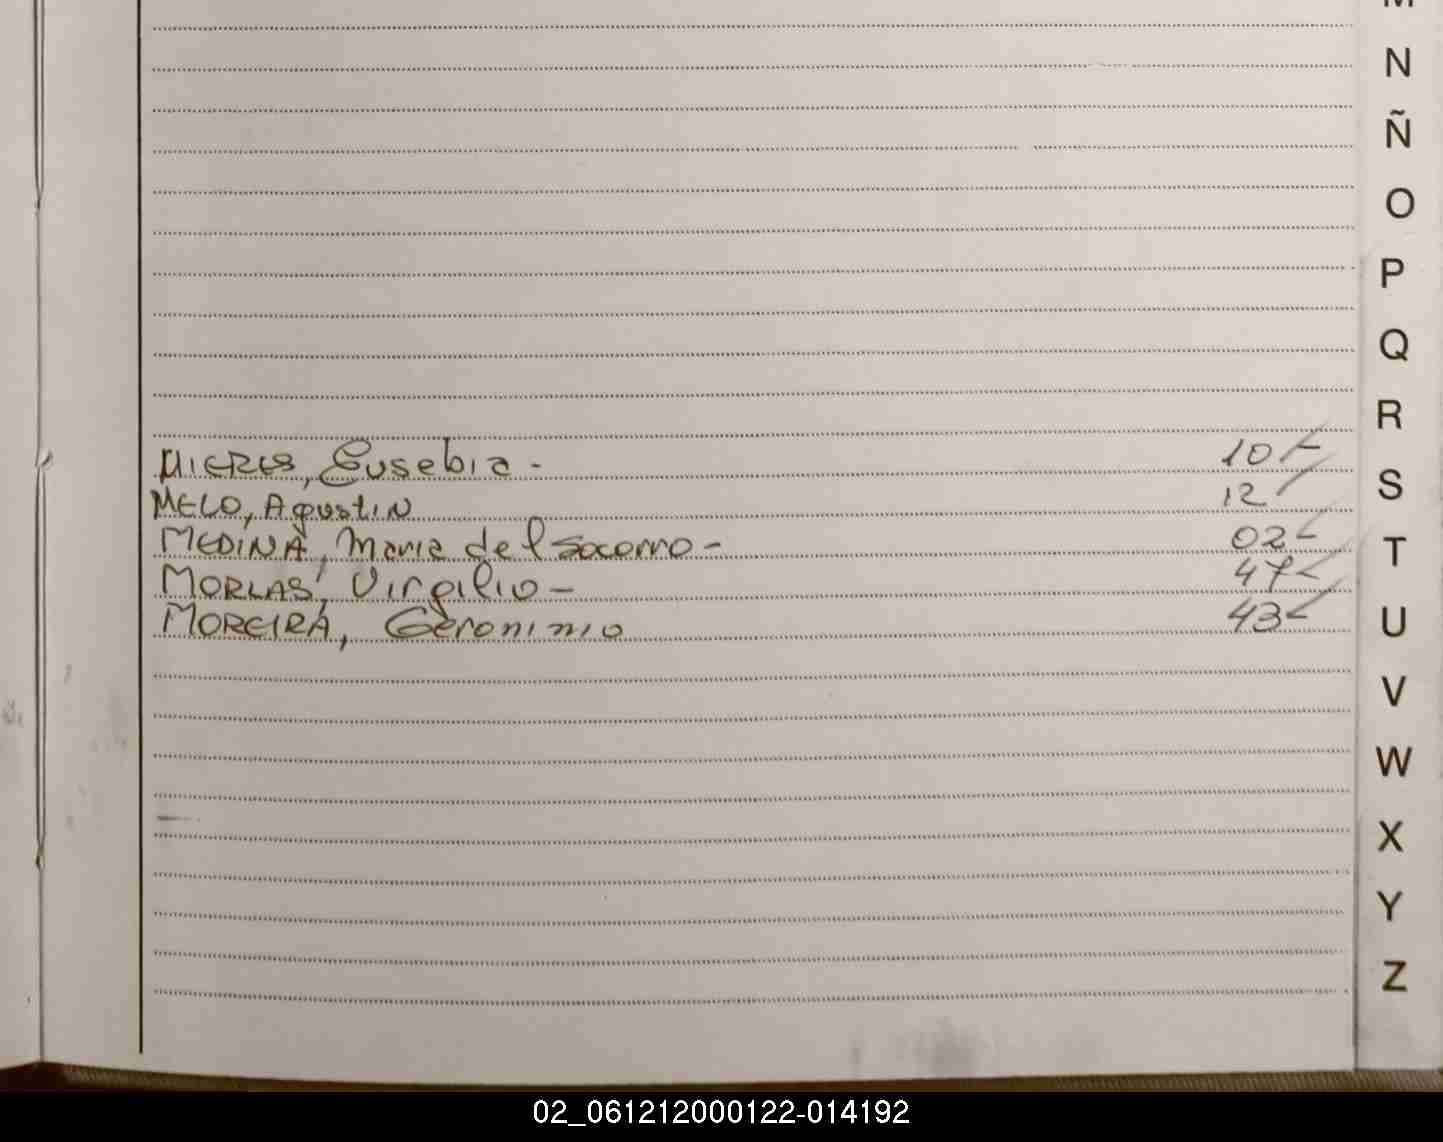 M
N
Ñ
O
P
Q
R
S
T
U
V
W
X
Y
Z
MIERES, Eusebia - 10
MELO, Agustin 12
MEDINA, Maria del Socorro - 02
MORLAS, Virgilio - 47
MOREIRA, Geronimo 43
02_061212000122-014192